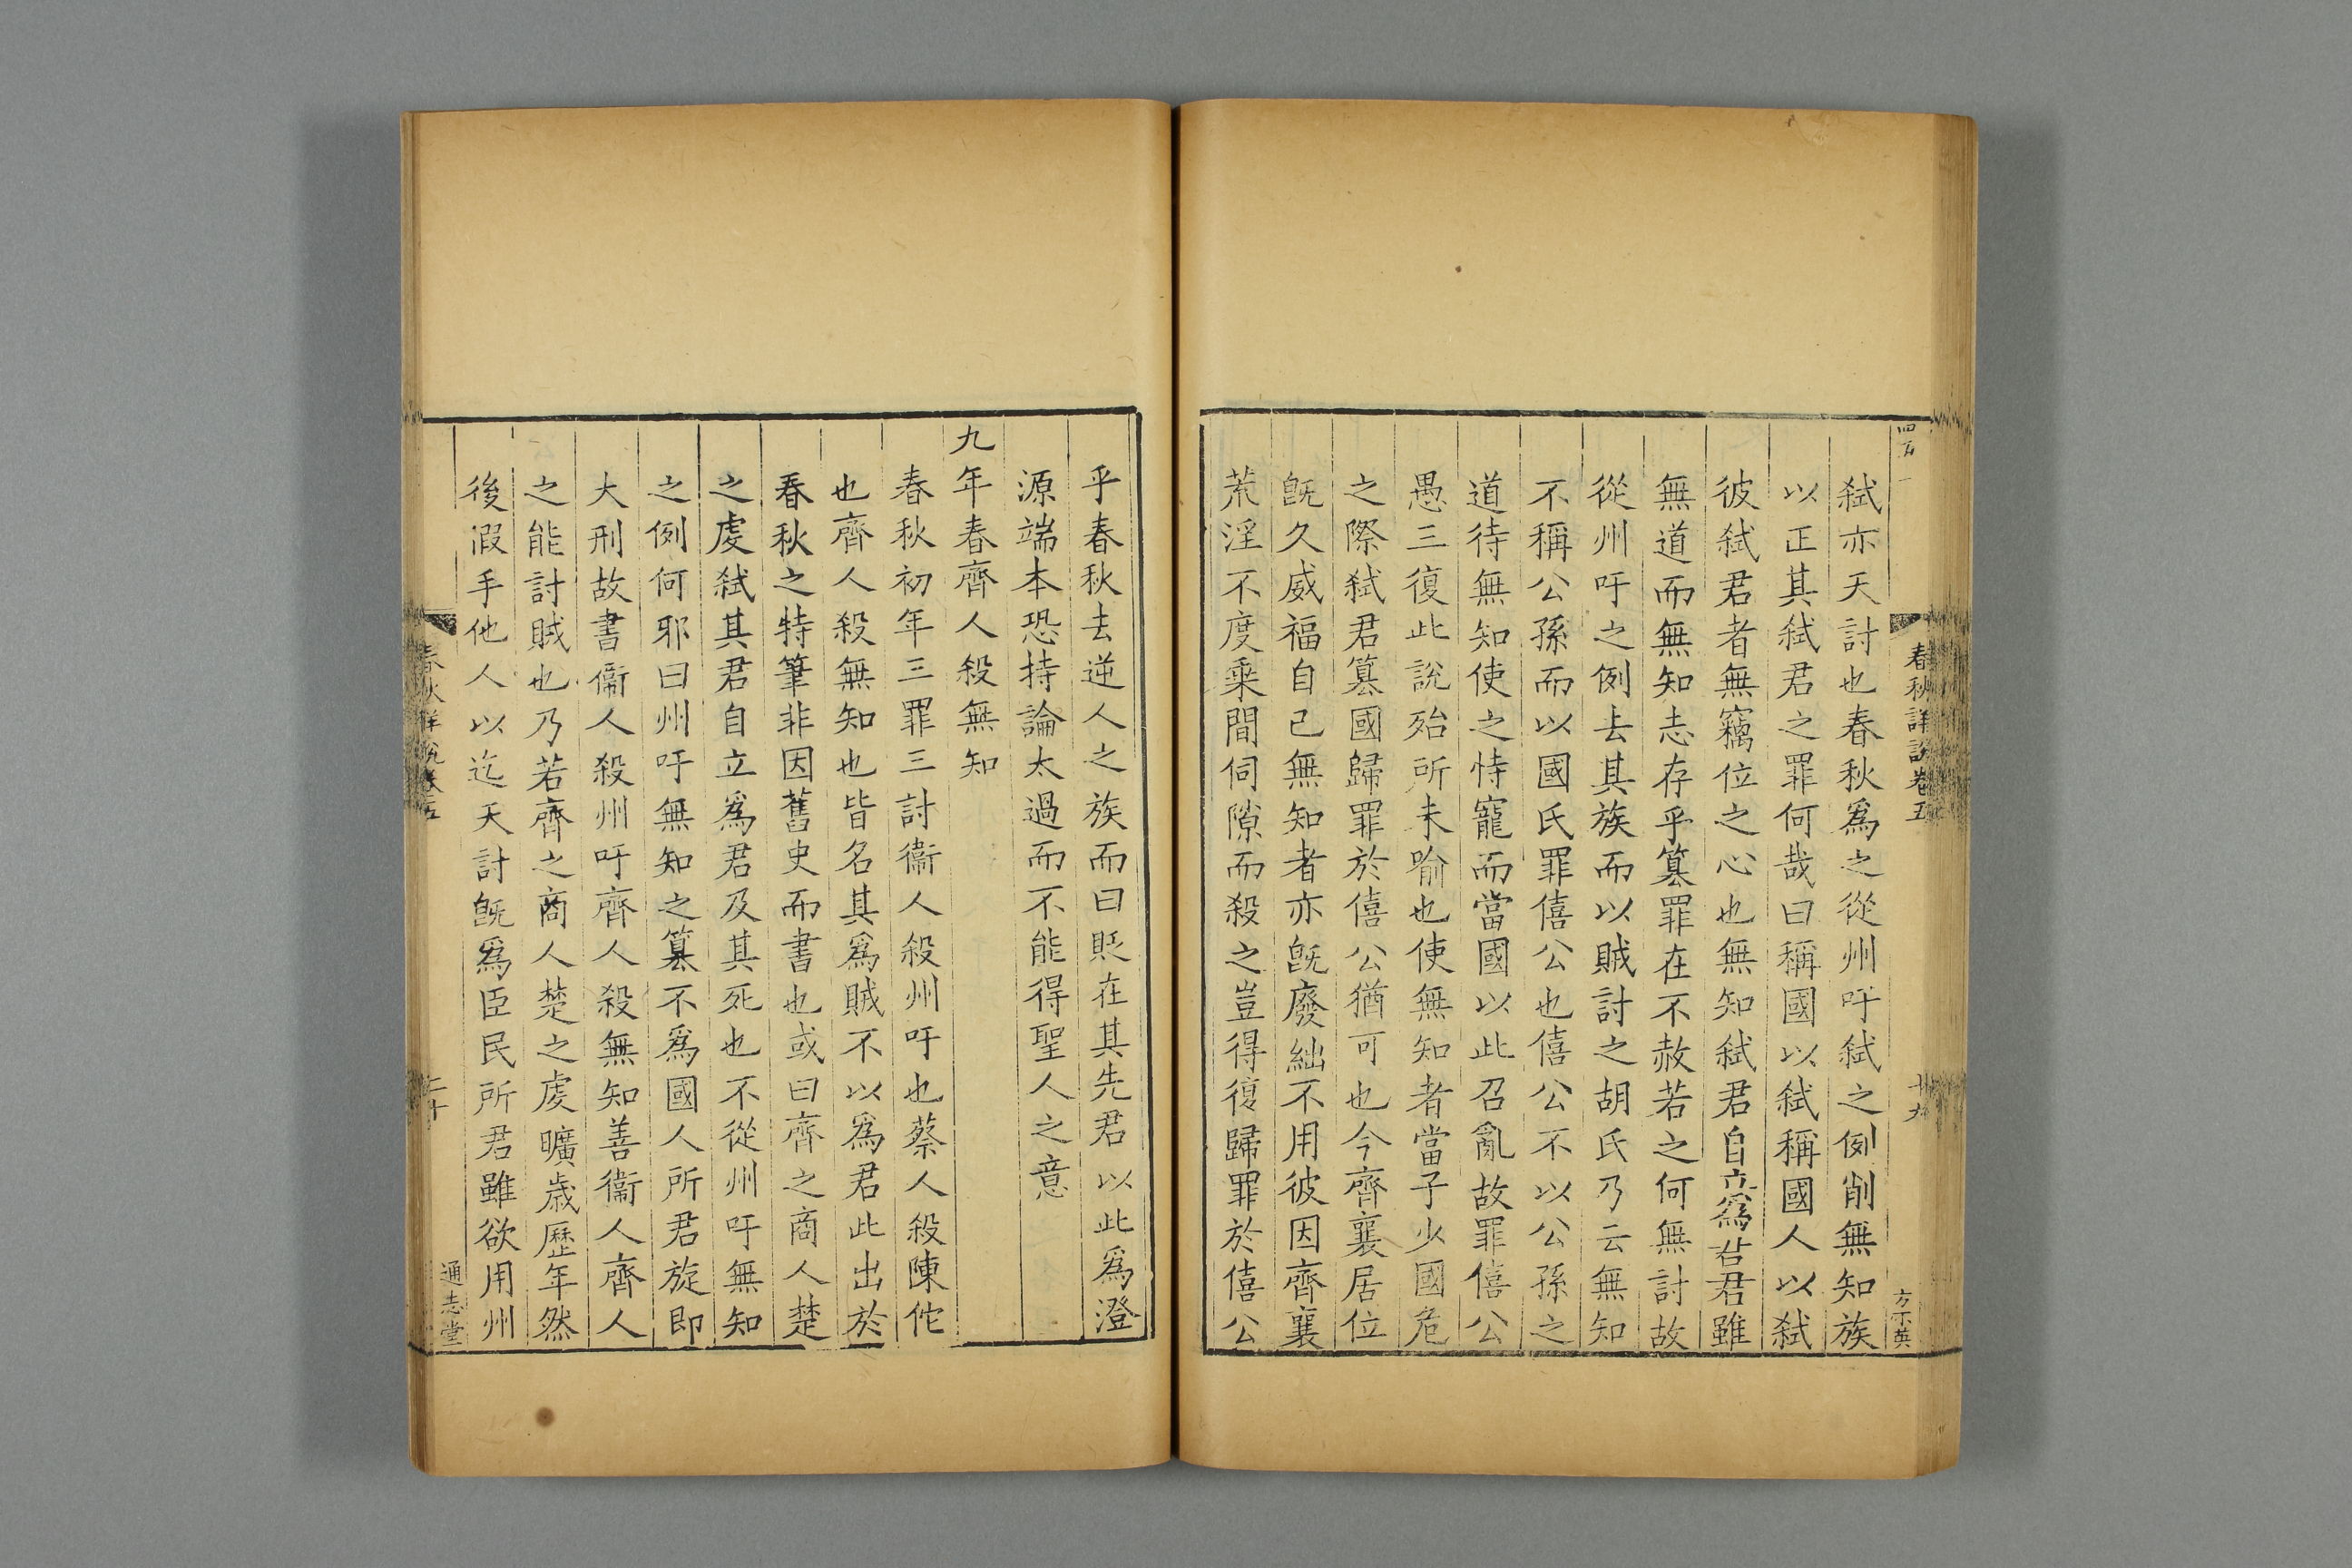 春秋詳說卷五
十九
方示英
弑亦天討也春秋爲之從州吁弑之例削無知族
以正其弑君之罪何哉曰稱國以弑稱國人以弑
彼弑君者無竊位之心也無知弑君自立爲君君雖
無道而無知志存乎篡罪在不赦若之何無討故
從州吁之例去其族而以賊討之胡氏乃云無知
不稱公孫而以國氏罪僖公也僖公不以公孫之
道待無知使之恃寵而當國以此召亂故罪僖公
愚三復此說殆所未喻也使無知者當子少國危
之際弑君篡國歸罪於僖公猶可也今齊襄居位
旣久威福自已無知者亦旣廢絀不用彼因齊襄
荒淫不度乘間伺隙而殺之豈得復歸罪於僖公
乎春秋去逆人之族而曰貶在其先君以此爲澄
源端本恐持論太過而不能得聖人之意
九年春齊人殺無知
春秋初年三罪三討衞人殺州吁也蔡人殺陳佗
也齊人殺無知也皆名其爲賊不以爲君此出於
春秋之特筆非因舊史而書也或曰齊之商人楚
之虔弑其君自立爲君及其死也不從州吁無知
之例何邪曰州吁無知之篡不爲國人所君旋即
大刑故書衞人殺州吁齊人殺無知善衞人齊人
之能討賊也乃若齊之商人楚之虔曠歲歷年然
後假手他人以迄天討旣爲臣民所君雖欲用州
春秋詳說卷五
二十
通志堂